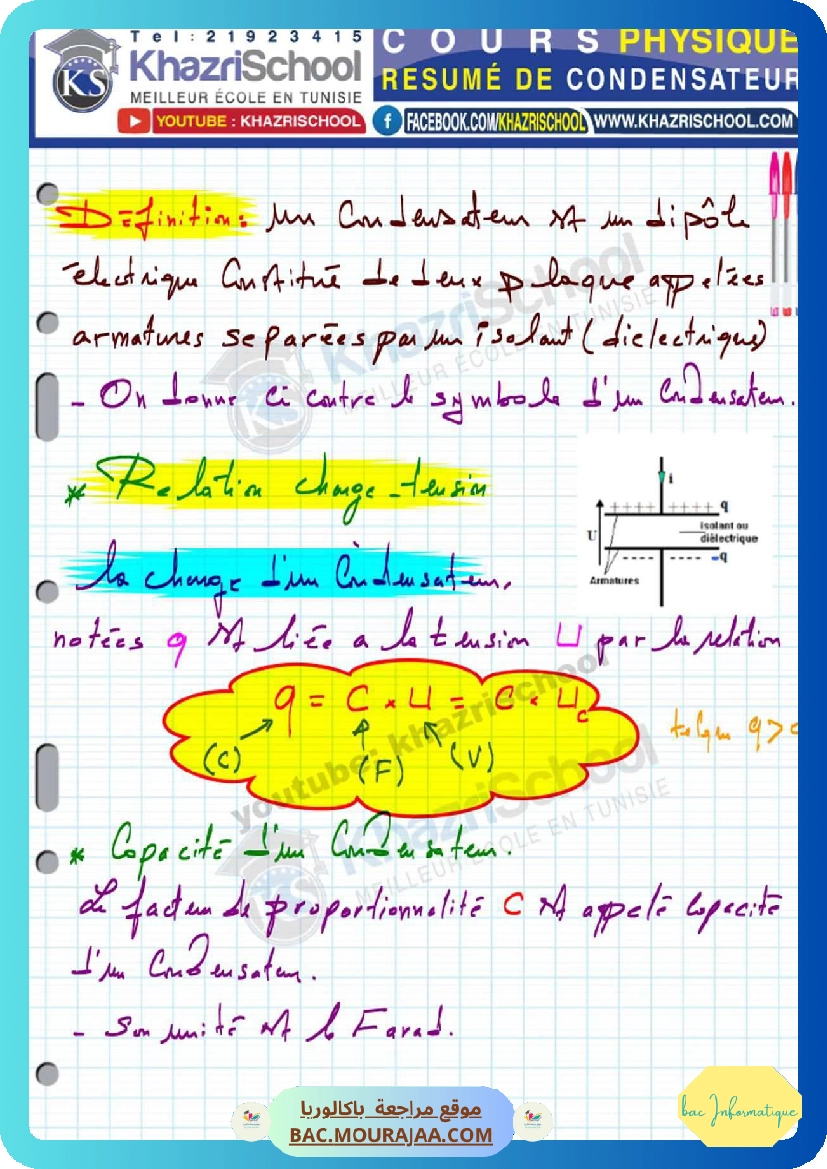 Tel:21923415
COURS PHYSIQUE
KhazriSchool
KS
RESUMÉ DE CONDENSATEUR
MEILLEUR ÉCOLE EN TUNISIE
YOUTUBE : KHAZRISCHOOL
FACEBOOK.COM/KHAZRISCHOOL
WWW.KHAZRISCHOOL.COM
Définition: un Condensateur est un dipôle
électrique Constitué de deux plaque appelées
armatures separées par un isolant (dielectrique)
- On donne ci contre le symbole d'un Condensateur.
* Relation charge-tension
i
++++ ++++ q
U
Isolant ou
diélectrique
---- ---- -q
Armatures
la charge d'un Condensateur,
notées q est liée a la tension U par la relation
q = C × U = C × Uc
(C) (F) (V)
telque q>0
* Capacité d'un Condensateur.
Le facteur de proportionnalité C est appelé capacité
d'un Condensateur.
- Son unité est le Farad.
KhazriSchool
MEILLEUR ÉCOLE EN TUNISIE
youtube: khazrischool
KhazriSchool
MEILLEUR ÉCOLE EN TUNISIE
موقع مراجعة باكالوريا
BAC.MOURAJAA.COM
bac Informatique